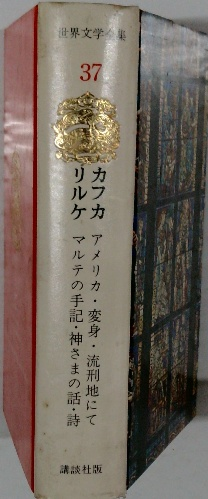 世界文学全集
37
カフカ
リルケ
アメリカ・変身・流刑地にて
マルテの手記・神さまの話・詩
講談社版